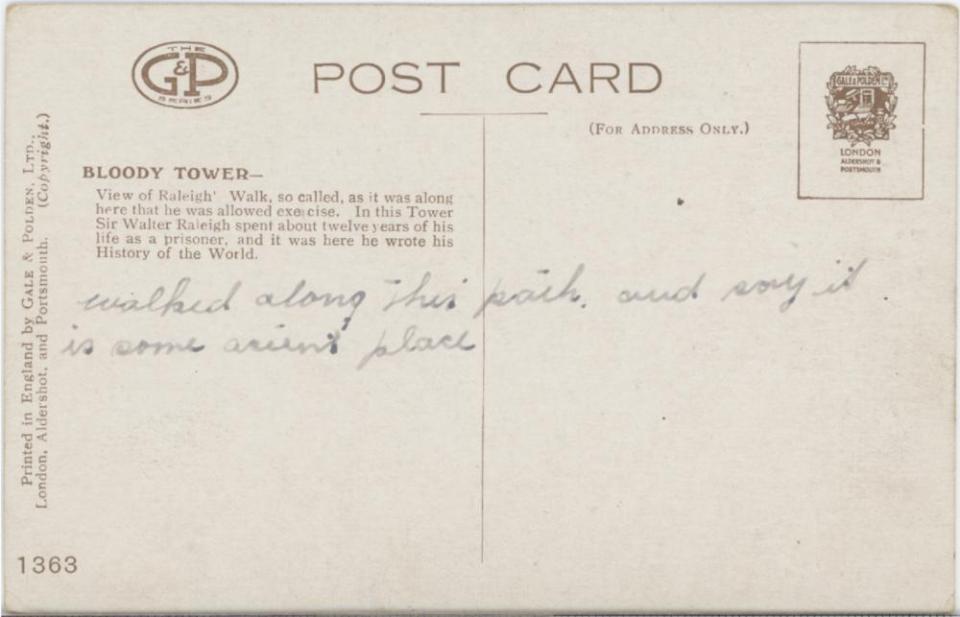 THE
G&P
SERIES
POST CARD
(FOR ADDRESS ONLY.)
GALE & POLDEN LTD
LONDON
ALDERSHOT &
PORTSMOUTH
BLOODY TOWER—
View of Raleigh' Walk, so called, as it was along
here that he was allowed exercise. In this Tower
Sir Walter Raleigh spent about twelve years of his
life as a prisoner, and it was here he wrote his
History of the World.
walked along this path. and say it
is some acient place
Printed in England by GALE & POLDEN, LTD.,
London, Aldershot, and Portsmouth. (Copyright.)
1363